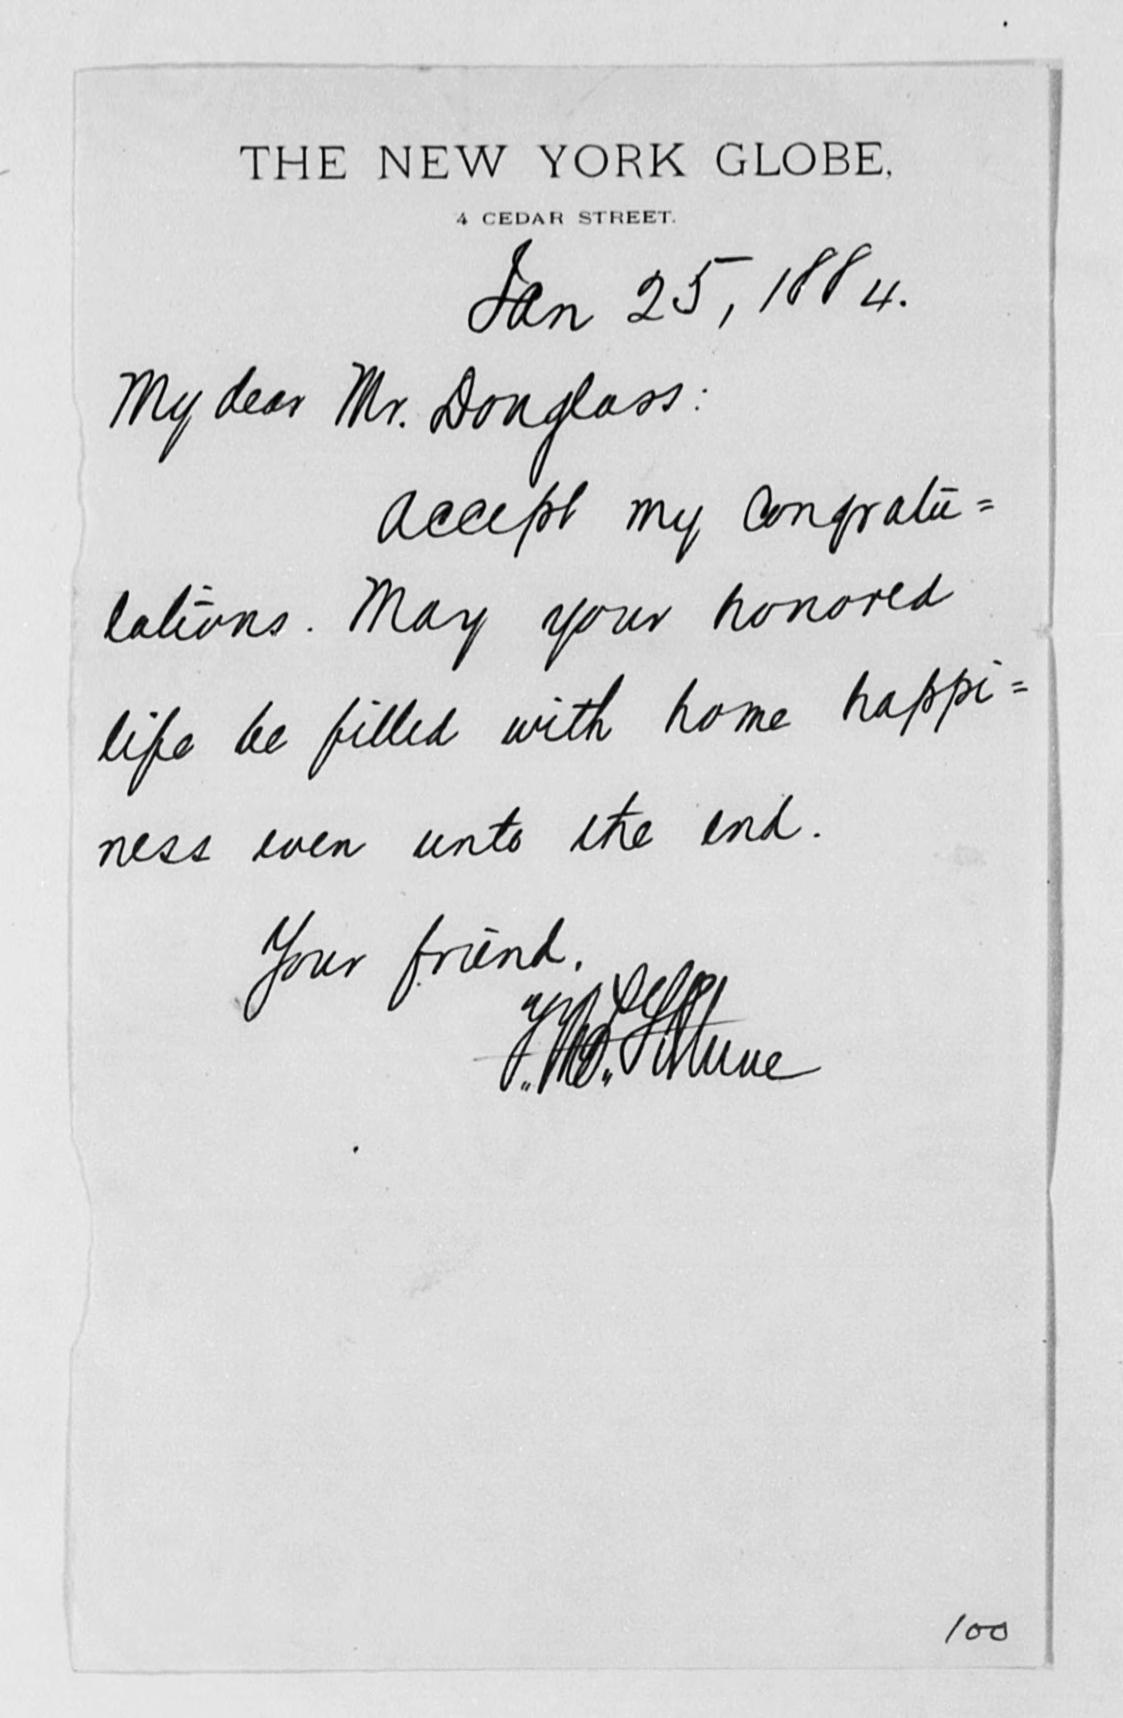 THE NEW YORK GLOBE,
4 CEDAR STREET.
Jan 25, 1884.
My dear Mr. Douglass:
Accept my congratu=
lations. May your honored
life be filled with home happi=
ness even unto the end.
Your friend,
T. Tho. Fortune
100